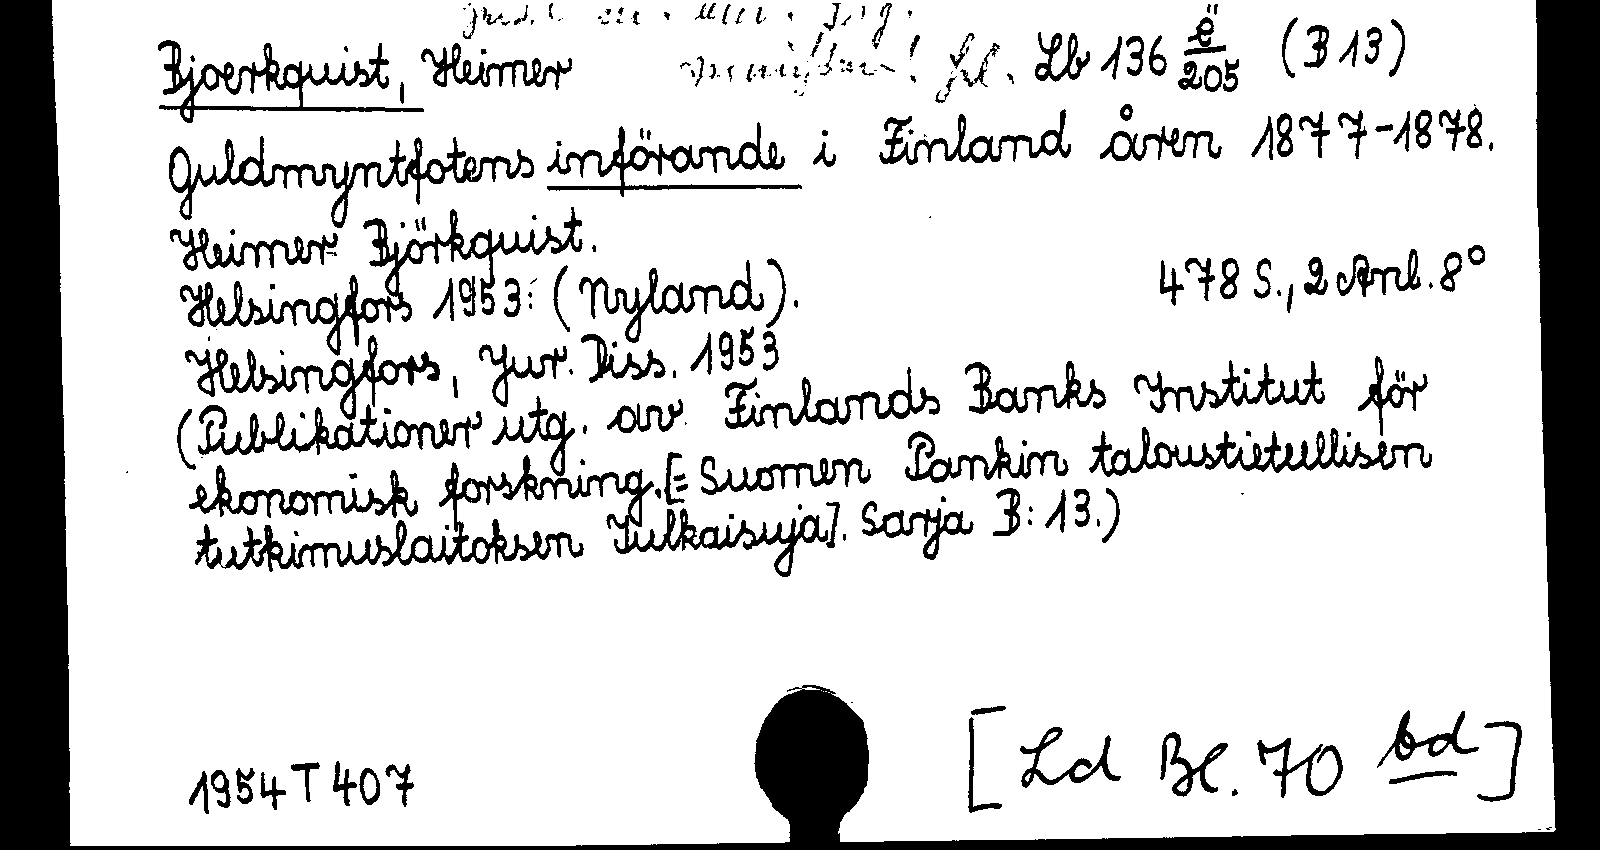 Bjoerkquist, Heimer Lb 136 ë/205 (B 13)
Guldmyntfotens införande i Finland åren 1877-1878.
Heimer Björkquist.
Helsingfors 1953: (Nyland). 478 S., 2 Anl. 8°
Helsingfors, Jur. Diss. 1953
(Publikationer utg. av Finlands Banks Institut för
ekonomisk forskning. [= Suomen Pankin taloustieteellisen
tutkimuslaitoksen Julkaisuja]. Sarja B: 13.)
[Ld Bl. 70 bd]
1954 T 407